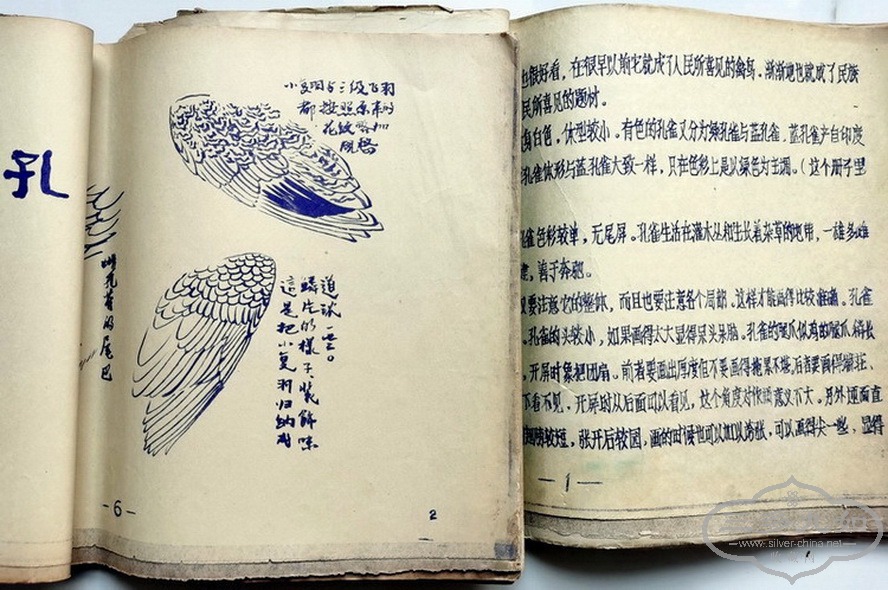 孔
小复羽与三级飞羽
都按照原来的
花纹略加
风格
雌孔雀的尾巴
這是把小复羽归纳成
鱗片的樣子、裝飾味
道
-6-
2
也很好看，在很早以前它就成了人民所喜见的禽鸟。渐渐地也就成了民族
民所喜见的题材。
白色，体型较小。有色的孔雀又分为绿孔雀与蓝孔雀。蓝孔雀产自印度
孔雀体形与蓝孔雀大致一样，只在色彩上是以绿色为主调。（这个册子里
孔雀色彩较单，无尾屏。孔雀生活在灌木丛和生长着杂草的地带，一雄多雌
健，善于奔驰。
又要注意它的整体，而且也要注意各个局部。这样才能画得比较准确。孔雀
。孔雀的头较小，如果画得太大显得呆头呆脑。孔雀的腿爪似鸡的腿爪稍长
，开屏时象把团扇。前者要画出厚度但不要画得拖累不堪，后者要画得
下看不见。开屏时从后面可以看见，这个角度对作画意义不大。另外
较短，张开后较园，画的时候也可以加以夸张，可以画得尖一些，显得
—1—
www.silver-china.net